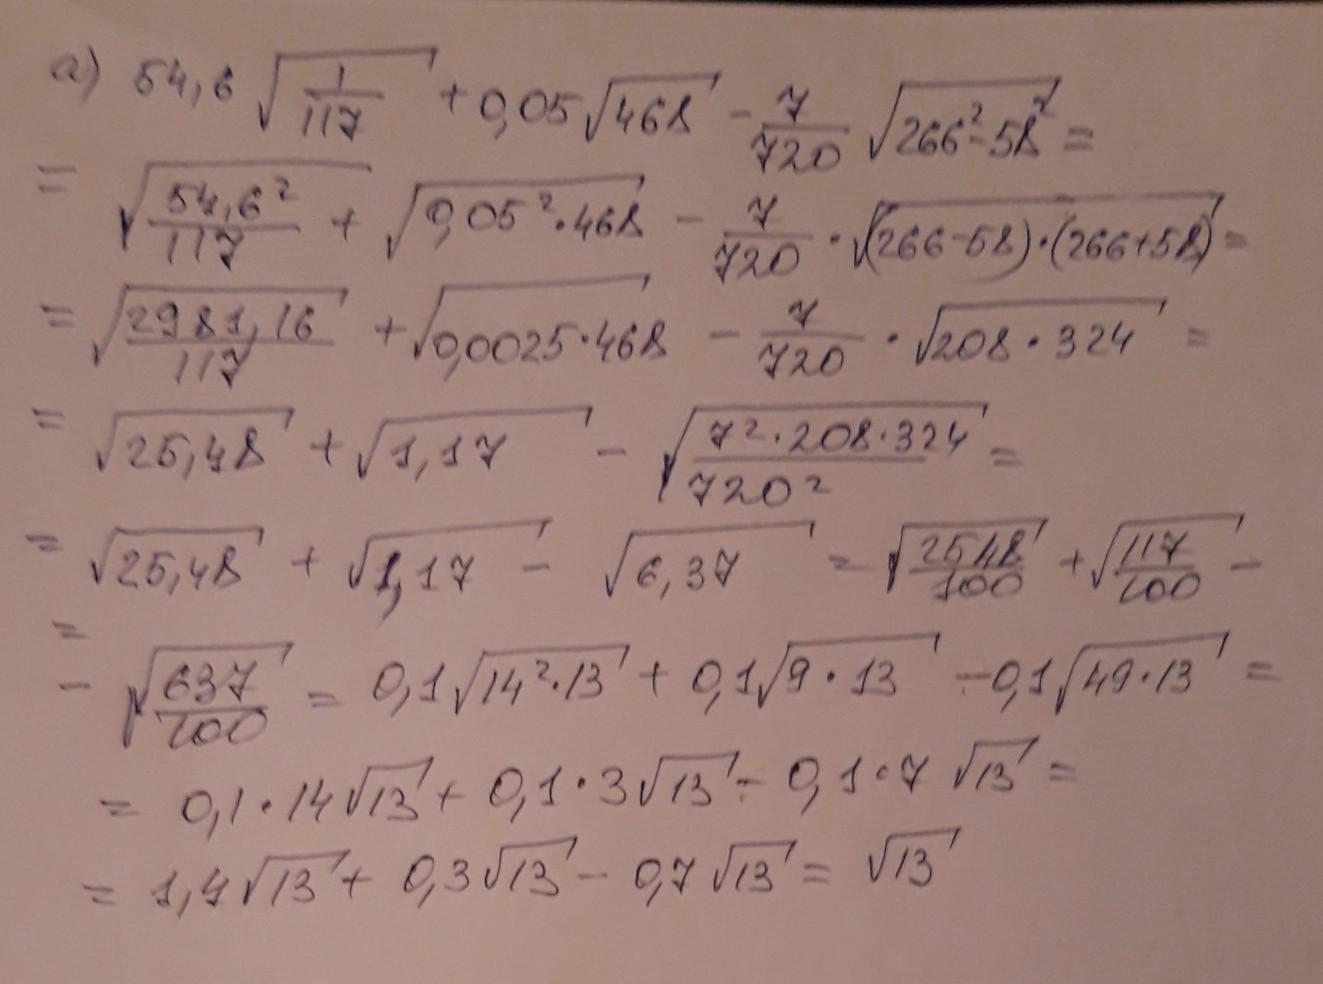 а) 54,6 √(1/117) + 0,05 √468 - 7/720 √(266² - 58²) =
= √(54,6²/117) + √(0,05² · 468) - 7/720 · √((266-58) · (266+58)) =
= √(2981,16/117) + √(0,0025 · 468) - 7/720 · √(208 · 324) =
= √25,48 + √1,17 - √(7² · 208 · 324/720²) =
= √25,48 + √1,17 - √6,37 = √(2548/100) + √(117/100) -
=
- √(637/100) = 0,1√(14² · 13) + 0,1√(9 · 13) - 0,1√(49 · 13) =
= 0,1 · 14√13 + 0,1 · 3√13 - 0,1 · 7 √13 =
= 1,4√13 + 0,3√13 - 0,7√13 = √13